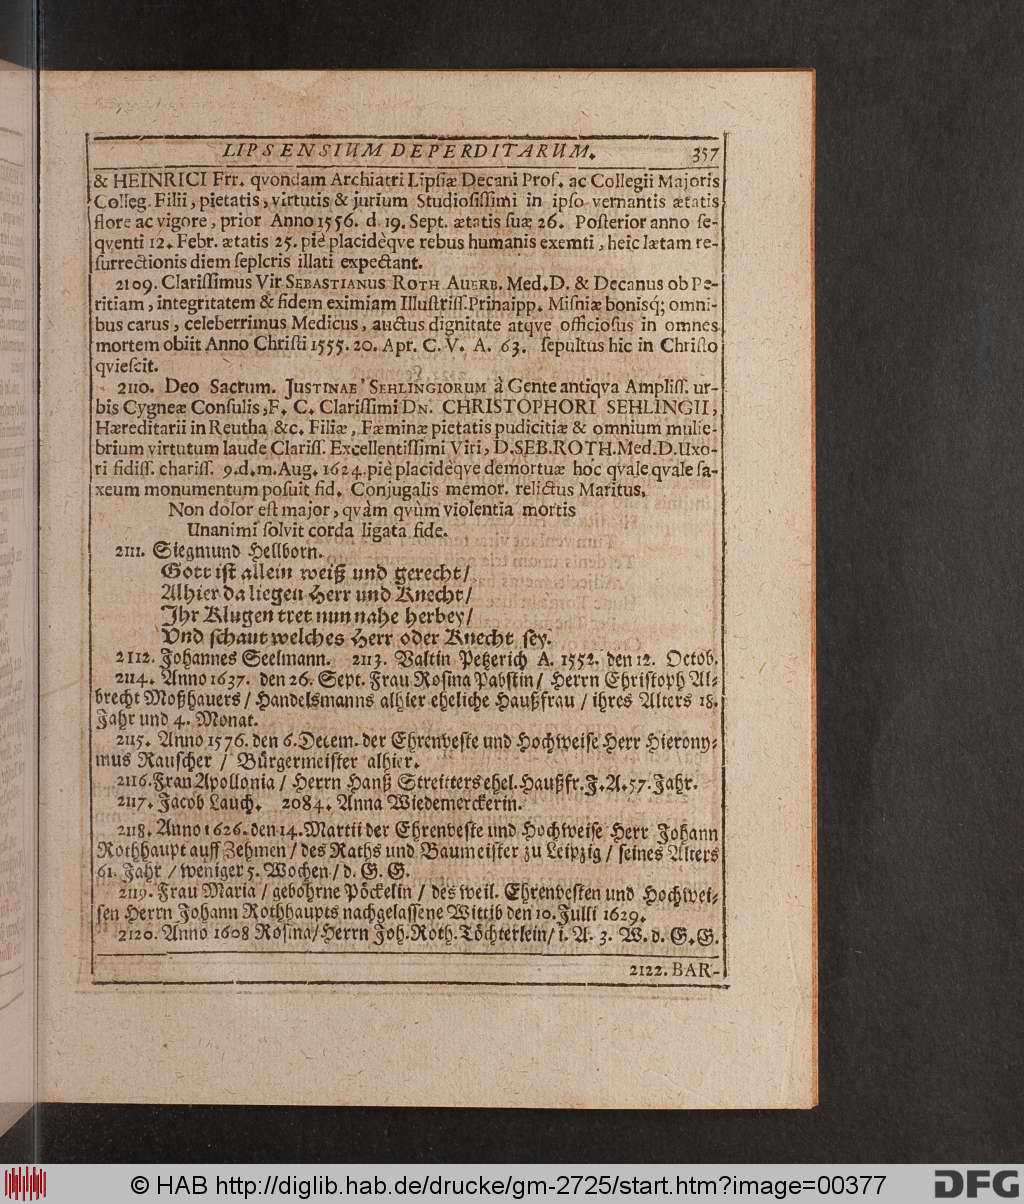 LIPSENSIUM DEPERDITARUM. 357
& HEINRICI Frr. qvondam Archiatri Lipsiæ Decani Prof. ac Collegii Majoris
Colleg. Filii, pietatis, virtutis & jurium Studiosissimi in ipso vernantis ætatis
flore ac vigore, prior Anno 1556. d. 19. Sept. ætatis suæ 26. Posterior anno se-
qventi 12. Febr. ætatis 25. piè placidèqve rebus humanis exemti, heic lætam re-
surrectionis diem seplcris illati expectant.
2109. Clarissimus Vir SEBASTIANUS ROTH AUERB. Med. D. & Decanus ob Pe-
ritiam, integritatem & fidem eximiam Illustriss. Prinaipp. Misniæ bonisq; omni-
bus carus, celeberrimus Medicus, auctus dignitate atqve officiosus in omnes
mortem obiit Anno Christi 1555. 20. Apr. C. V. A. 63. sepultus hic in Christo
qviescit.
2110. Deo Sacrum. JUSTINAE SEHLINGIORUM à Gente antiqva Ampliss. ur-
bis Cygneæ Consulis, F. C. Clarissimi DN. CHRISTOPHORI SEHLINGII,
Hæreditarii in Reutha &c. Filiæ, Fæminæ pietatis pudicitiæ & omnium mulie-
brium virtutum laude Clariss. Excellentissimi Viri, D. SEB. ROTH. Med. D. Uxo-
ri fidiss. chariss. 9. d. m. Aug. 1624. piè placidèqve demortuæ hoc qvale qvale sa-
xeum monumentum posuit fid. Conjugalis memor. relictus Maritus.
Non dolor est major, qvàm qvùm violentia mortis
Unanimi solvit corda ligata fide.
2111. Siegmund Hellborn.
Gott ist allein weiß und gerecht/
Alhier da liegen Herr und Knecht/
Ihr Klugen tret nun nahe herbey/
Vnd schaut welches Herr oder Knecht sey.
2112. Johannes Seelmann. 2113. Valtin Petzerich A. 1552. den 12. Octob.
2114. Anno 1637. den 26. Sept. Frau Rosina Pabstin/ Herrn Christoph Al-
brecht Moßhauers/ Handelsmanns alhier eheliche Haußfrau/ ihres Alters 18.
Jahr und 4. Monat.
2115. Anno 1576. den 6. Decem. der Ehrenveste und Hochweise Herr Hierony-
mus Rauscher/ Bürgermeister alhier.
2116. Frau Apollonia/ Herrn Hanß Streitters ehel. Haußfr. J. A. 57. Jahr.
2117. Jacob Lauch. 2084. Anna Wiedemerckerin.
2118. Anno 1626. den 14. Martii der Ehrenveste und Hochweise Herr Johann
Rothhaupt auff Zehmen/ des Raths und Baumeister zu Leipzig/ seines Alters
61. Jahr/ weniger 5. Wochen/ d. G. G.
2119. Frau Maria/ gebohrne Pöckelin/ des weil. Ehrenvesten und Hochwei-
sen Herrn Johann Rothhaupts nachgelassene Wittib den 10. Julli 1629.
2120. Anno 1608 Rosina/ Herrn Joh. Roth. Töchterlein/ i. A. 3. W. d. G. G.
2122. BAR-
© HAB http://diglib.hab.de/drucke/gm-2725/start.htm?image=00377
DFG